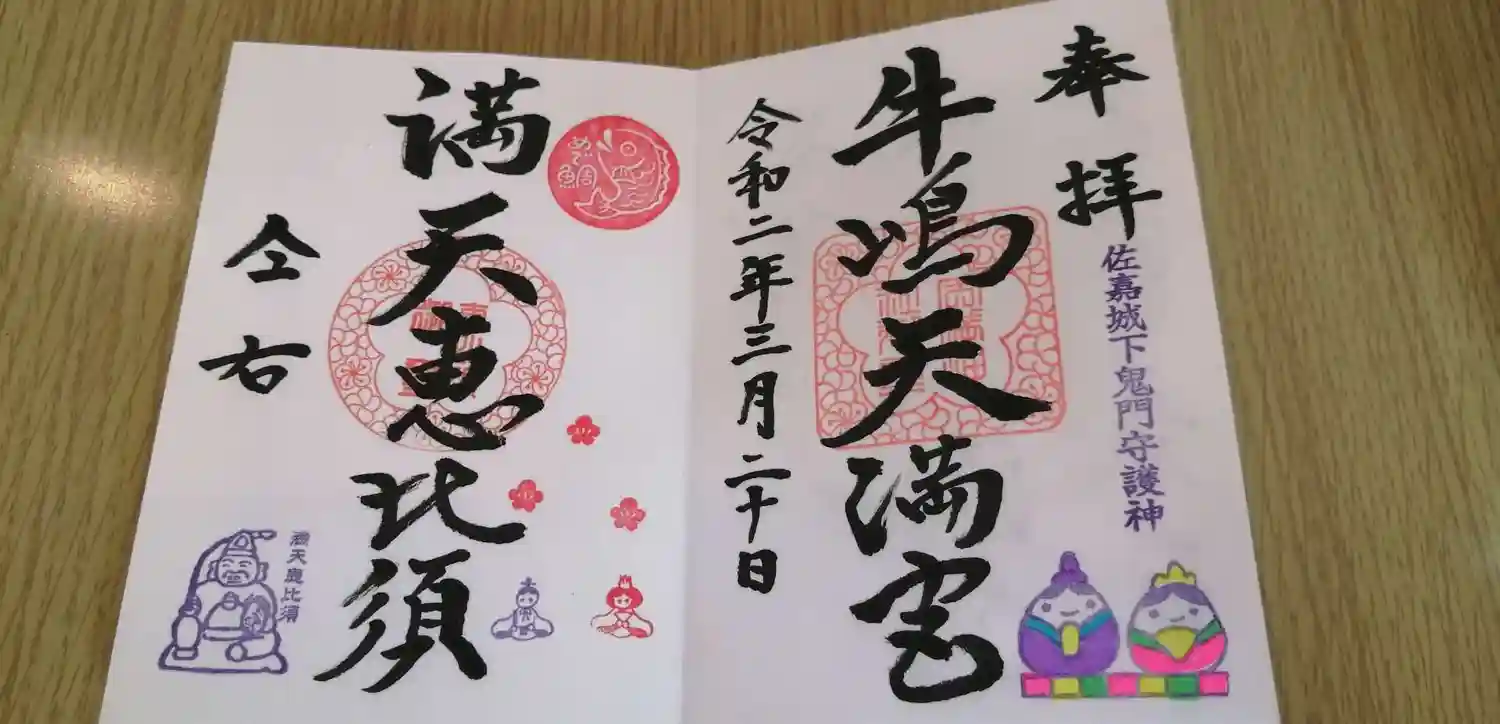 奉拝
佐嘉城下鬼門守護神
牛嶋天満宮
令和二年三月二十日
めで鯛
満天恵比須
仝右
満天恵比須